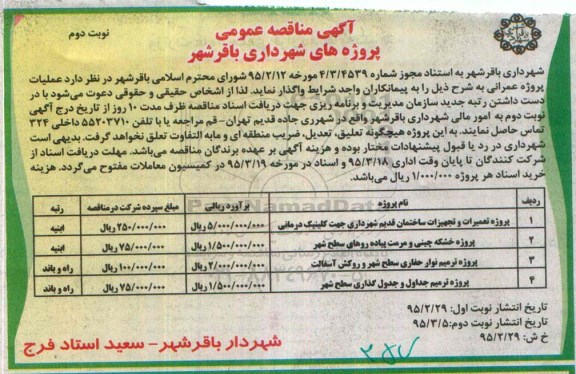 آگهی مناقصه عمومی
نوبت دوم
پروژه های شهرداری باقرشهر
شهرداری باقرشهر به استناد مجوز شماره ۴/۳/۴۵۳۹ مورخه ۹۵/۲/۱۲ شورای محترم اسلامی باقرشهر در نظر دارد عملیات
پروژه عمرانی به شرح ذیل را به پیمانکاران واجد شرایط واگذار نماید. لذا از اشخاص حقیقی و حقوقی دعوت می‌شود با در
دست داشتن رتبه جدید سازمان مدیریت و برنامه ریزی جهت دریافت اسناد مناقصه ظرف مدت ۱۰ روز از تاریخ درج آگهی
نوبت دوم به امور مالی شهرداری باقرشهر واقع در شهرری جاده قدیم تهران- قم مراجعه یا با تلفن ۵۵۲۰۳۷۱۰ داخلی ۳۲۴
تماس حاصل نمایند. به این پروژه هیچگونه تعلیق، تعدیل، ضریب منطقه ای و مابه التفاوت تعلق نخواهد گرفت. بدیهی است
شهرداری در رد یا قبول پیشنهادات مختار بوده و هزینه آگهی بر عهده برندگان مناقصه می‌باشد. مهلت دریافت اسناد از
شرکت کنندگان تا پایان وقت اداری ۹۵/۳/۱۸ و اسناد در مورخه ۹۵/۳/۱۹ در کمیسیون معاملات مفتوح می‌گردد. هزینه
خرید اسناد هر پروژه ۱/۰۰۰/۰۰۰ ریال می‌باشد.
ردیف نام پروژه برآورد ریالی مبلغ سپرده شرکت در مناقصه رتبه
۱ پروژه تعمیرات و تجهیزات ساختمان قدیم شهرداری جهت کلینیک درمانی ۵/۰۰۰/۰۰۰/۰۰۰ ریال ۲۵۰/۰۰۰/۰۰۰ ریال ابنیه
۲ پروژه خشکه چینی و مرمت پیاده روهای سطح شهر ۱/۵۰۰/۰۰۰/۰۰۰ ریال ۷۵/۰۰۰/۰۰۰ ریال ابنیه
۳ پروژه ترمیم نوار حفاری سطح شهر و روکش آسفالت ۲/۰۰۰/۰۰۰/۰۰۰ ریال ۱۰۰/۰۰۰/۰۰۰ ریال راه و باند
۴ پروژه ترمیم جداول و جدول گذاری سطح شهر ۱/۵۰۰/۰۰۰/۰۰۰ ریال ۷۵/۰۰۰/۰۰۰ ریال راه و باند
تاریخ انتشار نوبت اول: ۹۵/۲/۲۹
تاریخ انتشار نوبت دوم: ۹۵/۳/۵
خ ش: ۹۵/۲/۲۹
شهردار باقرشهر – سعید استاد فرج